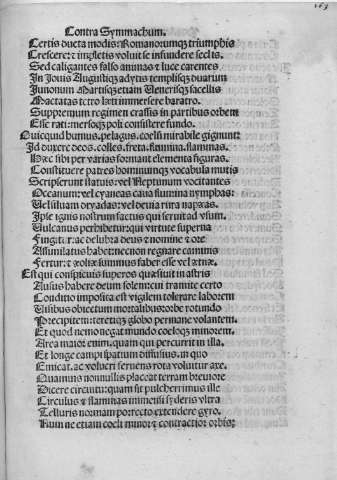 163
Contra Symmachum.
Certis ducta modis: Romanorumq; triumphis
Crescere: τ impletis voluit se infundere seclis.
Sed caligantes falso animas τ luce carentes
In Iouis Augustiq; adytis templisq; duarum
Iunonum Martisq; etiam Uenerisq; sacellis
Mactatas tetro lethi immersere baratro.
Supremum regimen crassis in partibus orbem
Esse rati: mersoq; poli consistere fundo.
Quicquid humus, pelagus, coelum mirabile gignunt
Id duxere deos. colles, freta. flumina. flammas.
Hec sibi per varias formant elementa figuras.
Constituere patres hominumq; vocabula mutis
Scripserunt statuis: vel Neptunum vocitantes
Oceanum: vel cyaneas caua flumina nymphas:
Uel siluam dryadas: vel deuia rura napeas.
Ipse ignis nostrum factus qui seruit ad vsum.
Uulcanus perhibetur: qui virtute superna
Fingitur: ac delubra deus τ nomine τ ore
Assimilatus habet: necnon regnare caminis
Fertur: τ eolie summus faber esse vel etne.
Est qui conspicuis superos quesiuit in astris
Ausus habere deum solem: cui tramite certo
Conditio imposita est vigilem tolerare laborem
Uisibus obiectum mortalibus: orbe rotundo
Precipitem: teretiq; globo per inane volantem.
Et quod nemo negat mundo coeloq; minorem.
Area maior enim. quam qui percurrit in illa.
Et longe campi spatium diffusius. in quo
Emicat. ac volucri feruens rota voluitur axe.
Quamuis nonnullis placeat terram breuiore
Dicere circuitu: quam sit pulcherrimus ille
Circulus τ flammas immensi syderis vltra
Telluris normam porrecto extendere gyro.
Num ne etiam coeli minor τ contractior orbis: